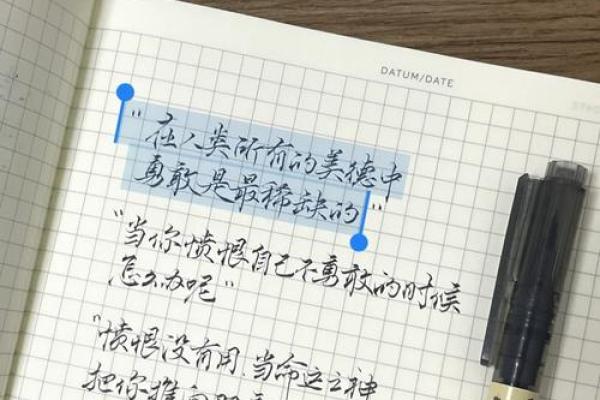 DATUM/DATE
"在人类所有的美德中
勇敢是最稀缺的"
"当你愤恨自己不勇敢的时候
怎么办呢"
"愤恨没有用,当命运之神
把你推向